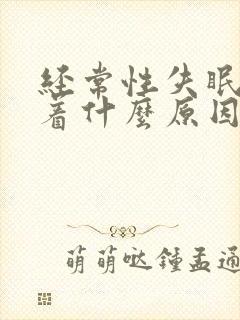 经常性失眠
着什麼原因
萌萌哒鍾孟通